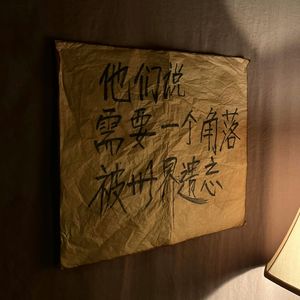 他们说
需要一个角落
被世界遗忘